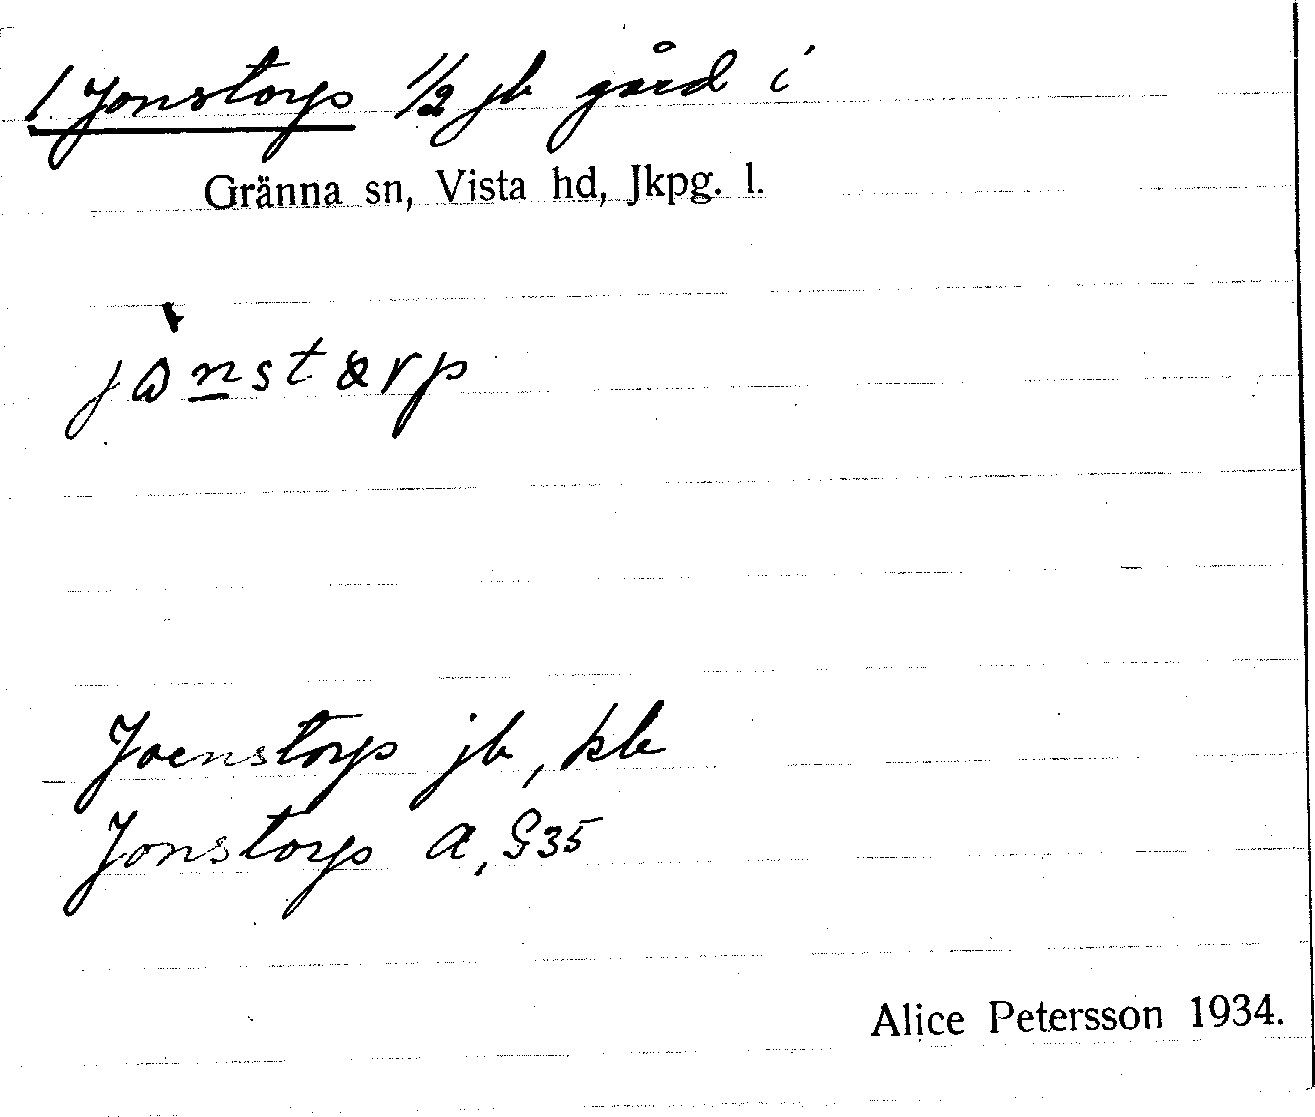 1 Jonstorp 1/2 jb gård i
Gränna sn, Vista hd, Jkpg. l.
Joenstorp jb, kb
Jonstorp a, G35
Alice Petersson 1934.